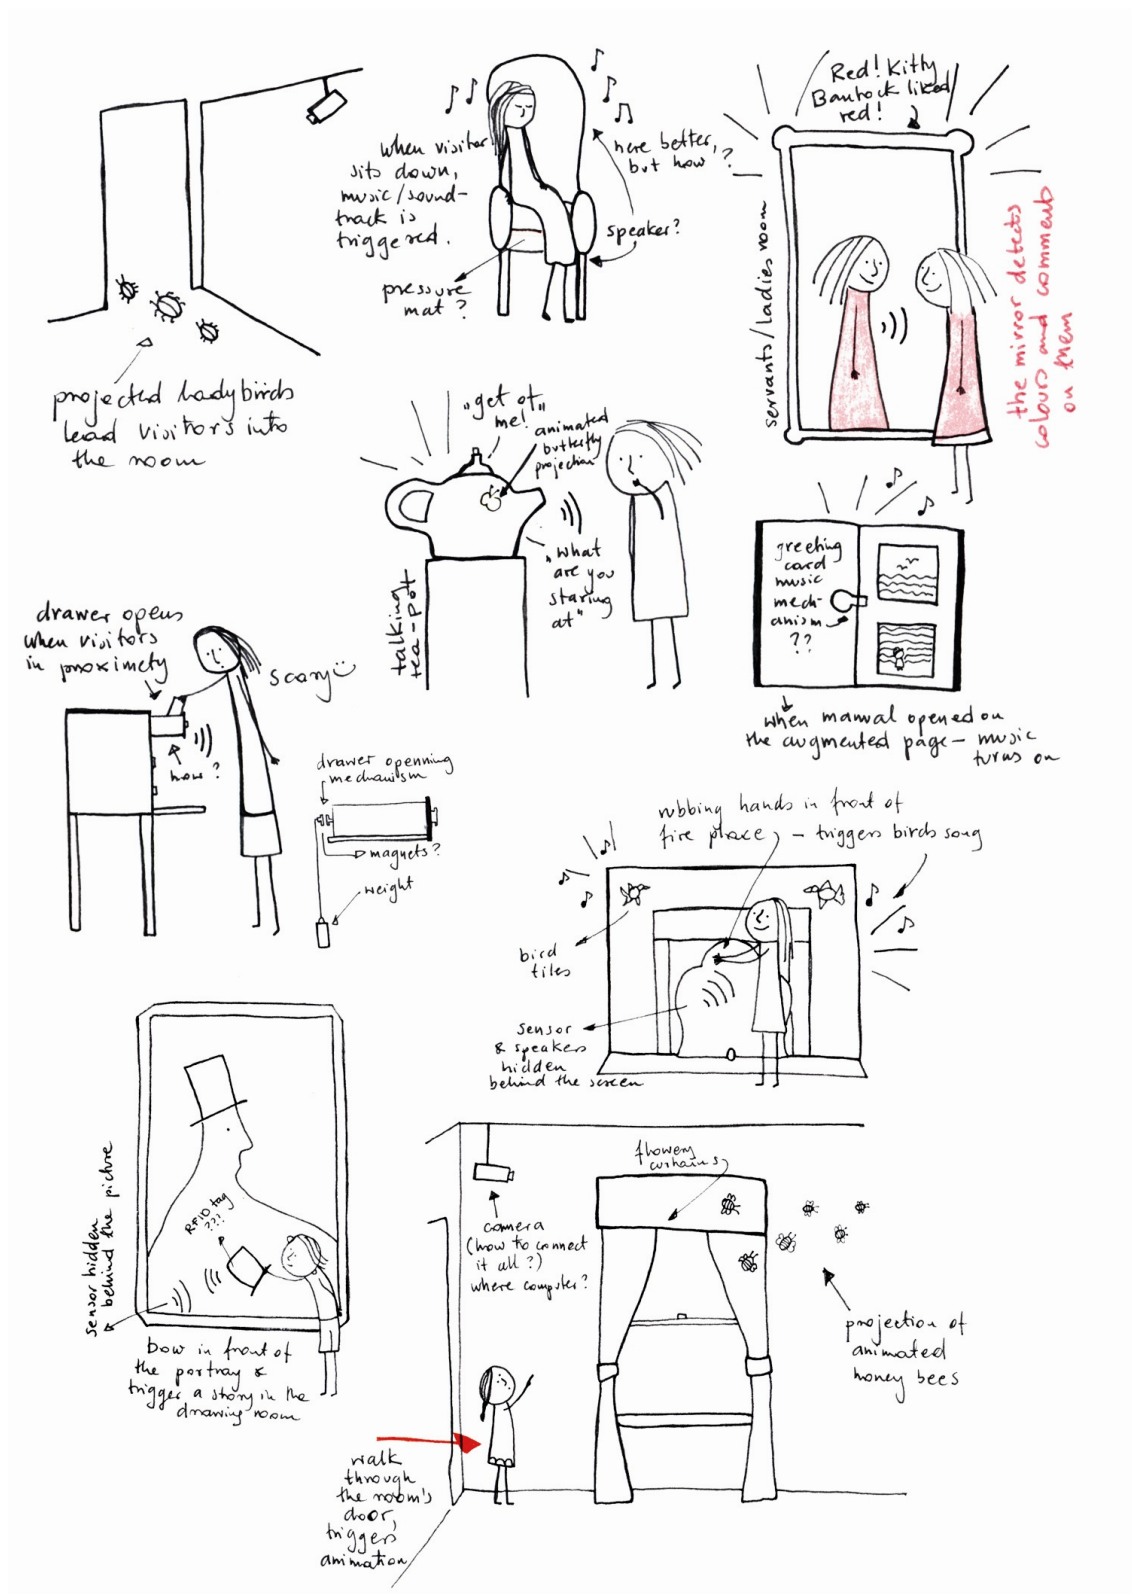 projected ladybirds
lead visitors into
the room
when visitor
sits down,
music/sound-
track is
triggered.
pressure
mat?
here better,
but how?
speaker?
Red! Kitty
Bantock liked
red!
servants/ladies room
the mirror detects
colours and comments
on them
"get of
me!"
animated
butterfly
projection
"what
are you
staring
at"
talking
tea-pott
greeting
card
music
mech-
anism
??
when manual opened on
the augmented page – music
turns on
drawer opens
when visitors
in proximety
scary
how?
drawer openning
mechanism
magnets?
weight
rubbing hands in front of
fire place, – triggers birds song
bird
tiles
sensor
& speakers
hidden
behind the screen
sensor hidden
behind the picture
RFID tag
???
bow in front of
the portray &
trigger a story in the
drawing room
flowery
curtains
camera
(how to connect
it all?)
where computer?
projection of
animated
honey bees
walk
through
the room's
door,
triggers
animation